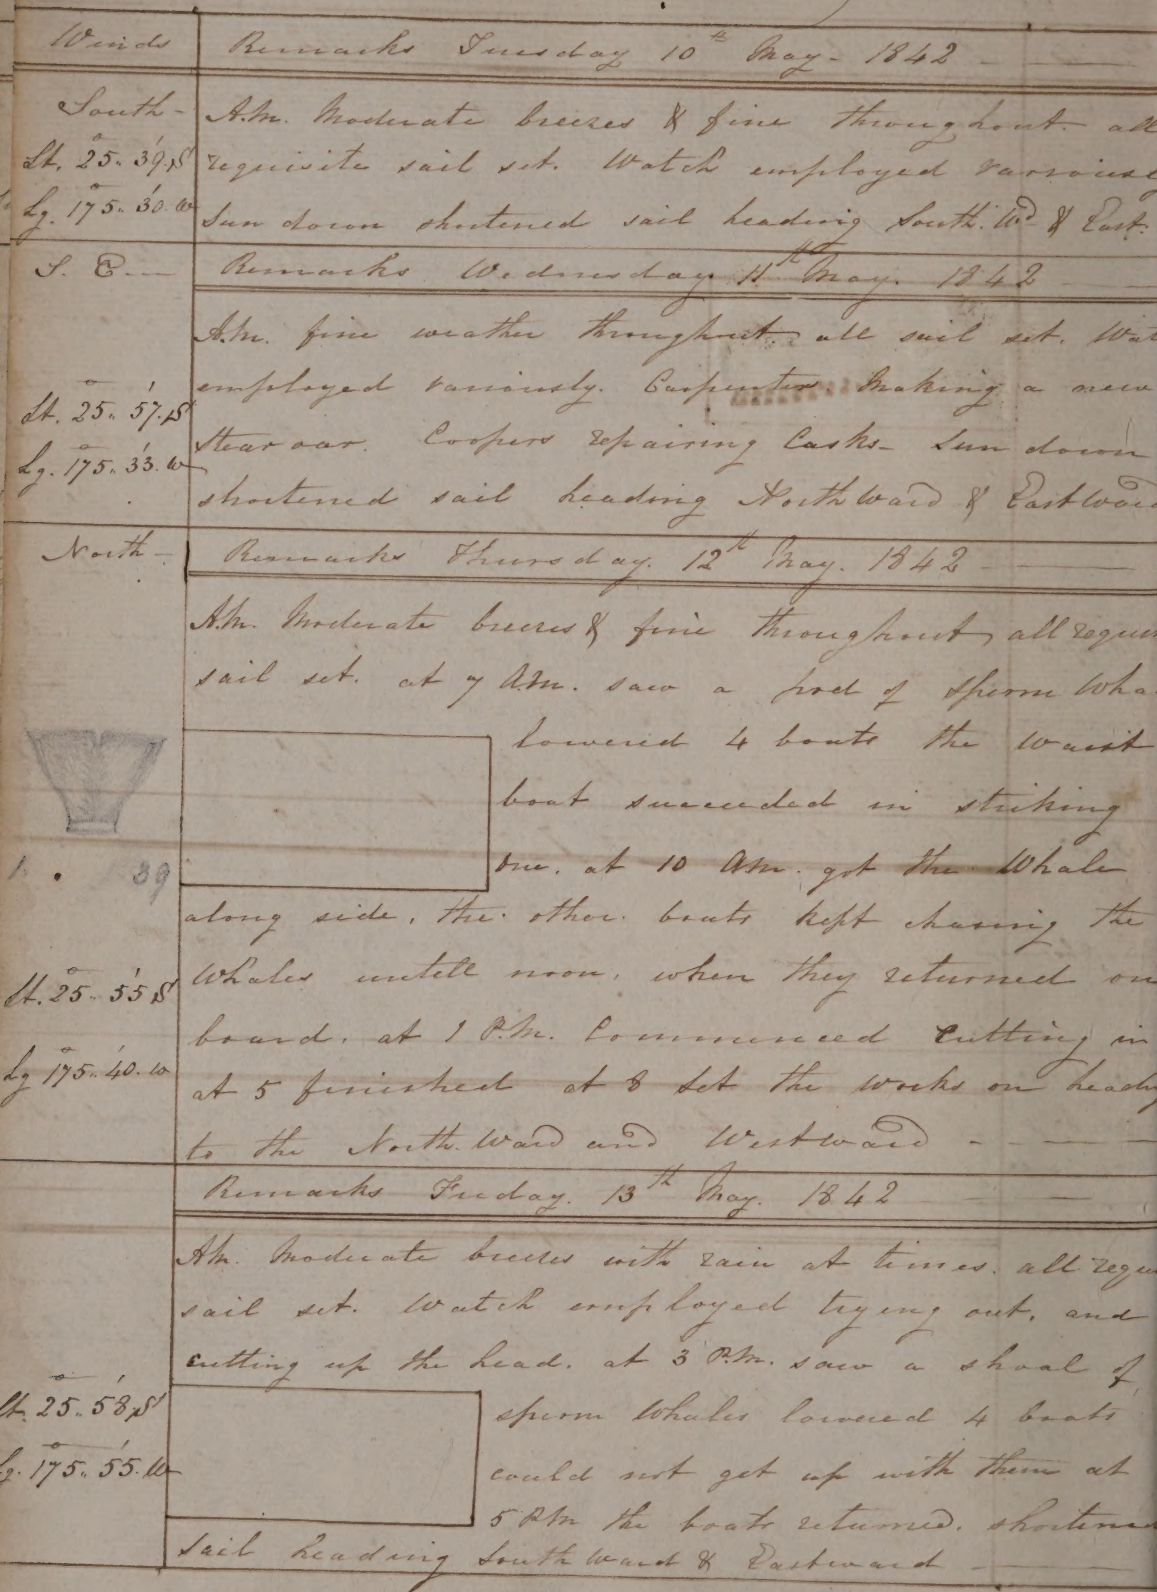 Winds Remarks Tuesday 10th May - 1842
South - A.M. Moderate breezes & fine throughout. all
Lt. 25° 39' S requisite sail set. Watch employed
Lg. 175° 30' W Sun down shortened sail heading South. Wd & East.
S. E Remarks Wednesday 11th May. 1842
A.M. fine weather throughout. all sail set. Wat
employed variously. Carpenter. Making a new
Lt. 25° 57' S Stear oar. Coopers repairing Casks - Sun down
Lg. 175° 33' W
shortened sail heading North Ward & Eastward
North - Remarks Thursday. 12th May. 1842
A.M. Moderate breezes & fine throughout, all requi
sail set. at 7 A.M. saw a pod of Sperm Wha
lowered 4 boats the Waist
boat succeeded in striking
1. . 39 One. at 10 AM. got the Whale
along side. the other. boats kept chasing the
Lt. 25° 55' S Whales untill noon. when they returned on
board. at 1 P.M. Commenced Cutting in
Lg 175° 40' W at 5 finished at 8 Set the works on heading
to the North. Ward and Westward
Remarks Friday. 13th May. 1842
AM. Moderate breezes with rain at times. all requi
sail set. Watch employed trying out, and
cutting up the head. at 3 P.M. saw a shoal of
Lt. 25° 58' S sperm Whales lowered 4 boats
Lg. 175° 55' W could not get up with them at
5 PM the boats returned. shortened
Sail heading South Ward & Eastward